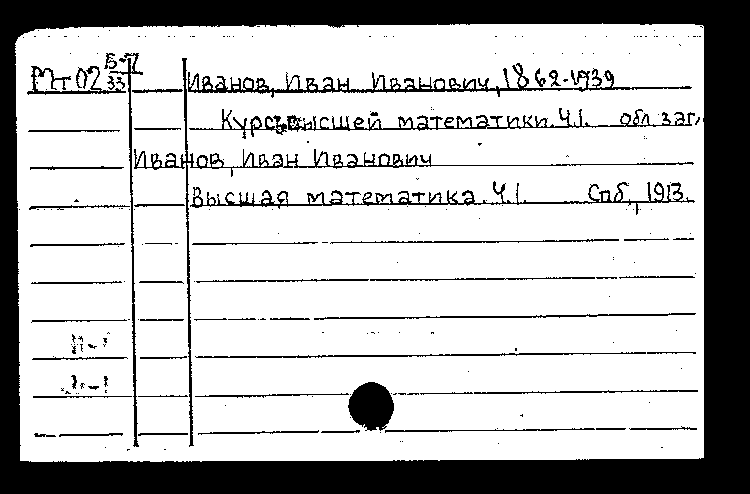 Мт02 33 Иванов, Иван Иванович, 1862-1939
Курсъ высшей математики. Ч.I. обл. заг.
Иванов, Иван Иванович
Высшая математика. Ч.I. Спб, 1913.